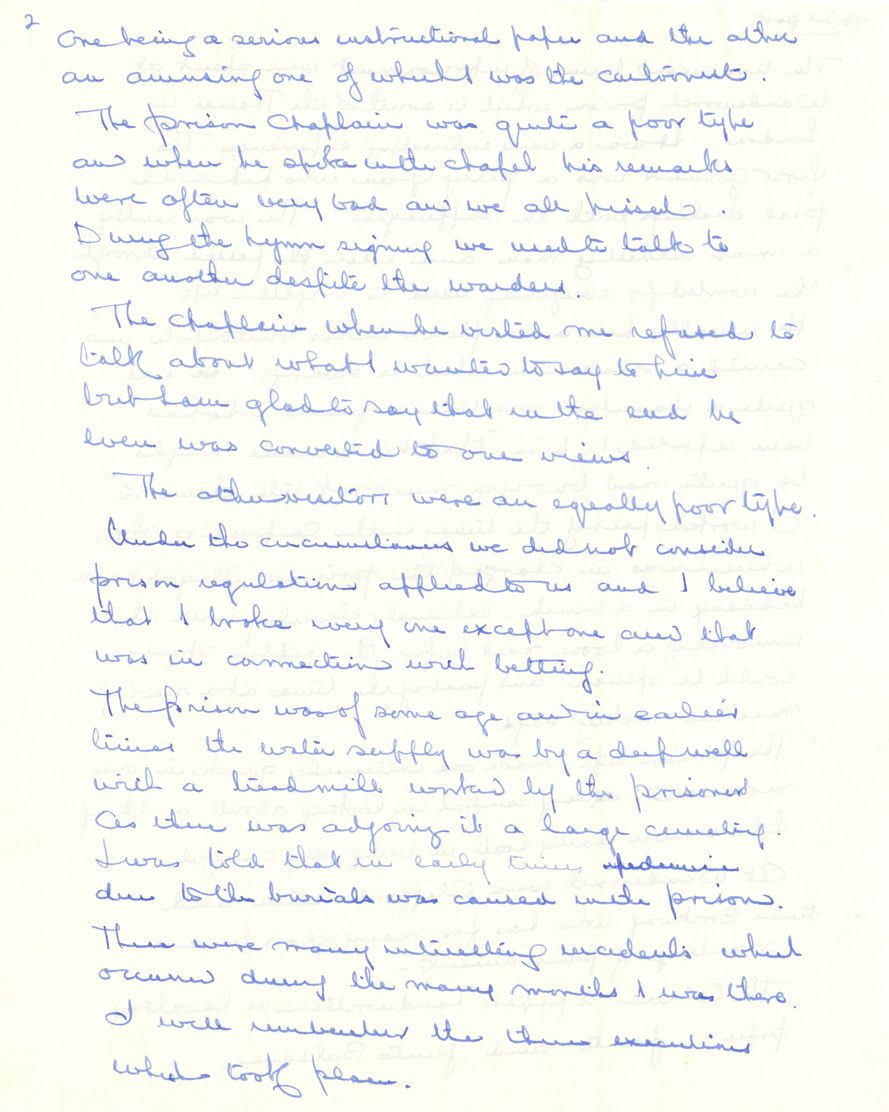 2
One being a serious instructional paper and the other
an amusing one of which I was the cartoonist.
The prison Chaplain was quite a poor type
and when he spoke in the chapel his remarks
were often very bad and we all hissed.
During the hymn signing we used to talk to
one another despite the warders.
The Chaplain when he visited me refused to
talk about what I wanted to say to him
but I am glad to say that in the end he
even was converted to our views.
The other visitors were an equally poor type.
Under the circumstances we did not consider
prison regulations applied to us and I believe
that I broke every one except one and that
was in connection with betting.
The prison was of some age and in earlier
times the water supply was by a deep well
with a treadmill worked by the prisoners
As there was adjoing it a large cemetery.
I was told that in early times epidemic
due to the burials was caused in the prison.
There were many interesting incidents which
occurred during the many months I was there.
I well remember the three executions
which took place.